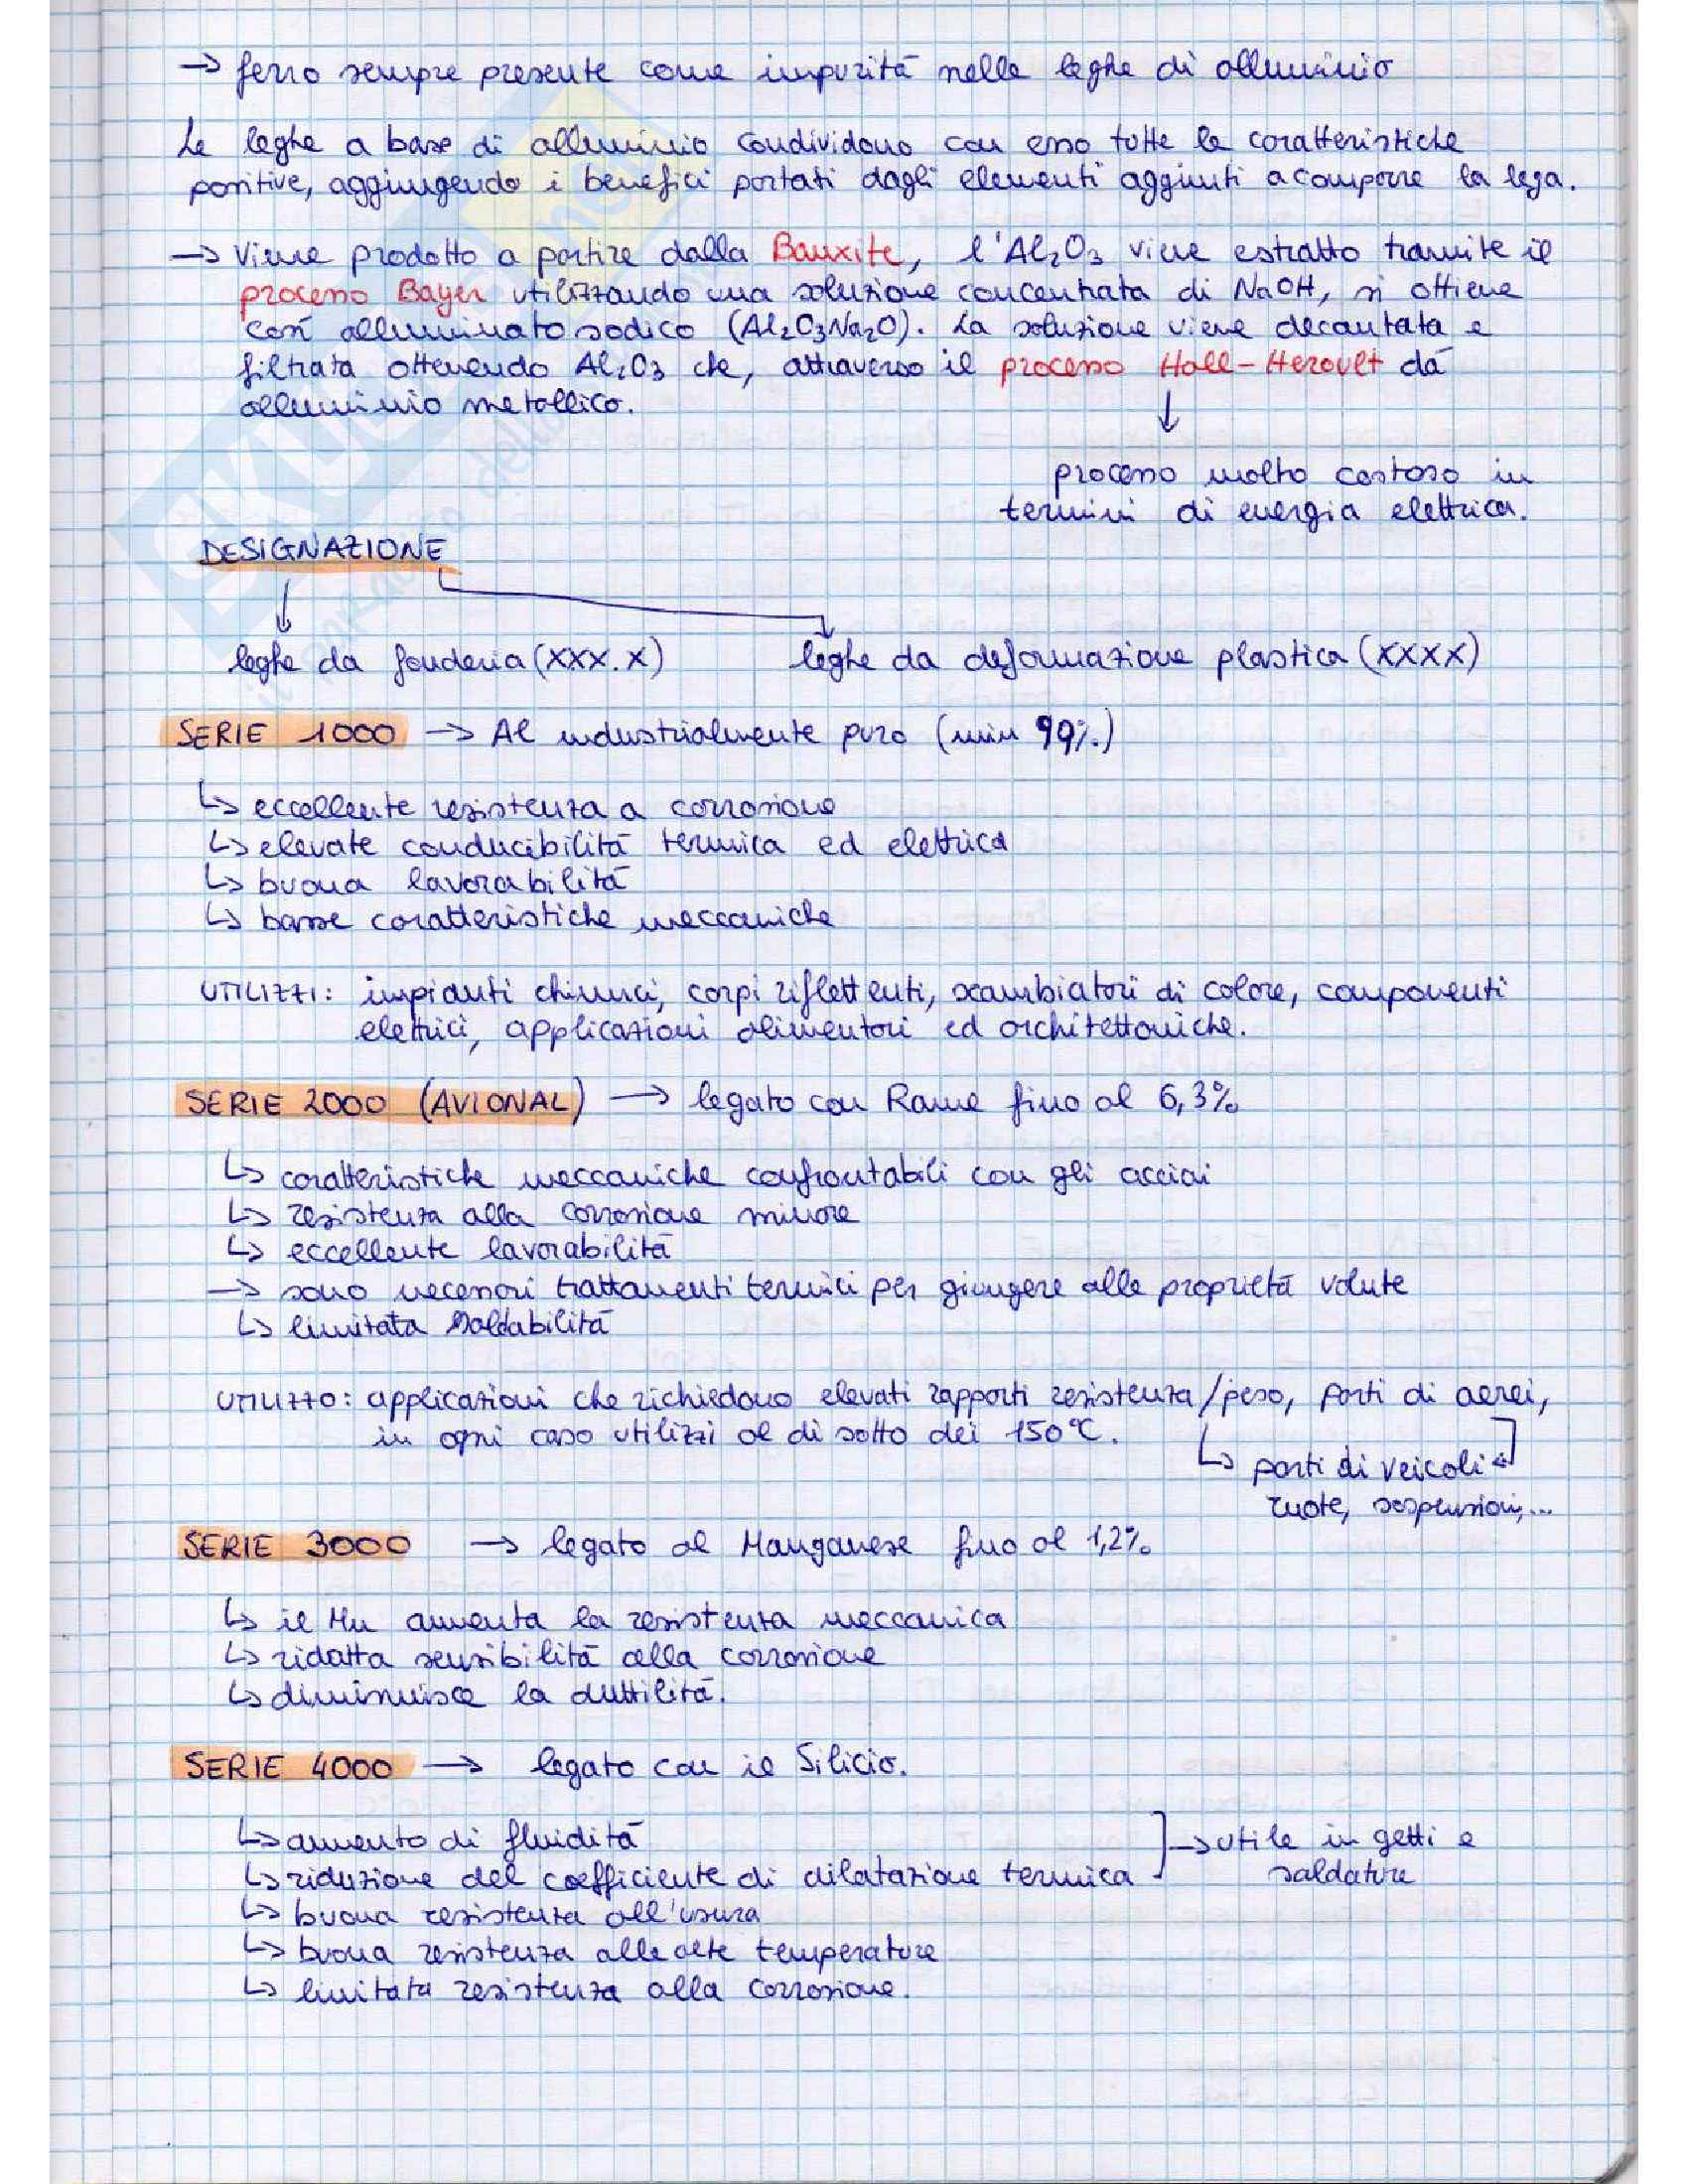 → ferro sempre presente come impurità nelle leghe di alluminio
Le leghe a base di alluminio condividono con esso tutte le caratteristiche
positive, aggiungendo i benefici portati dagli elementi aggiunti a comporre la lega.
→ Viene prodotto a partire dalla Bauxite, l'Al₂O₃ viene estratto tramite il
processo Bayer utilizzando una soluzione concentrata di NaOH, si ottiene
così alluminato sodico (Al₂O₃Na₂O). La soluzione viene decantata e
filtrata ottenendo Al₂O₃ che, attraverso il processo Hall-Heroult dà
alluminio metallico.
↓
processo molto costoso in
termini di energia elettrica.
DESIGNAZIONE
leghe da fonderia (XXX.X) leghe da deformazione plastica (XXXX)
SERIE 1000 → Al industrialmente puro (min 99%.)
↳ eccellente resistenza a corrosione
↳ elevate conducibilità termica ed elettrica
↳ buona lavorabilità
↳ basse caratteristiche meccaniche
UTILIZZI: impianti chimici, corpi riflettenti, scambiatori di calore, componenti
elettrici, applicazioni alimentari ed architettoniche.
SERIE 2000 (AVIONAL) → legato con Rame fino al 6,3%
↳ caratteristiche meccaniche confrontabili con gli acciai
↳ resistenza alla corrosione minore
↳ eccellente lavorabilità
→ sono necessari trattamenti termici per giungere alle proprietà volute
↳ limitata saldabilità
UTILIZZO: applicazioni che richiedono elevati rapporti resistenza/peso, parti di aerei,
in ogni caso utilizzi al di sotto dei 150°C.
↳ parti di veicoli
ruote, sospensioni,...
SERIE 3000 → legato al Manganese fino al 1,2%
↳ il Mn aumenta la resistenza meccanica
↳ ridotta sensibilità alla corrosione
↳ diminuisce la duttilità.
SERIE 4000 → legato con il Silicio.
↳ aumento di fluidità
↳ riduzione del coefficiente di dilatazione termica
→ utile in getti e
saldature
↳ buona resistenza all'usura
↳ buona resistenza alle alte temperature
↳ limitata resistenza alla corrosione.